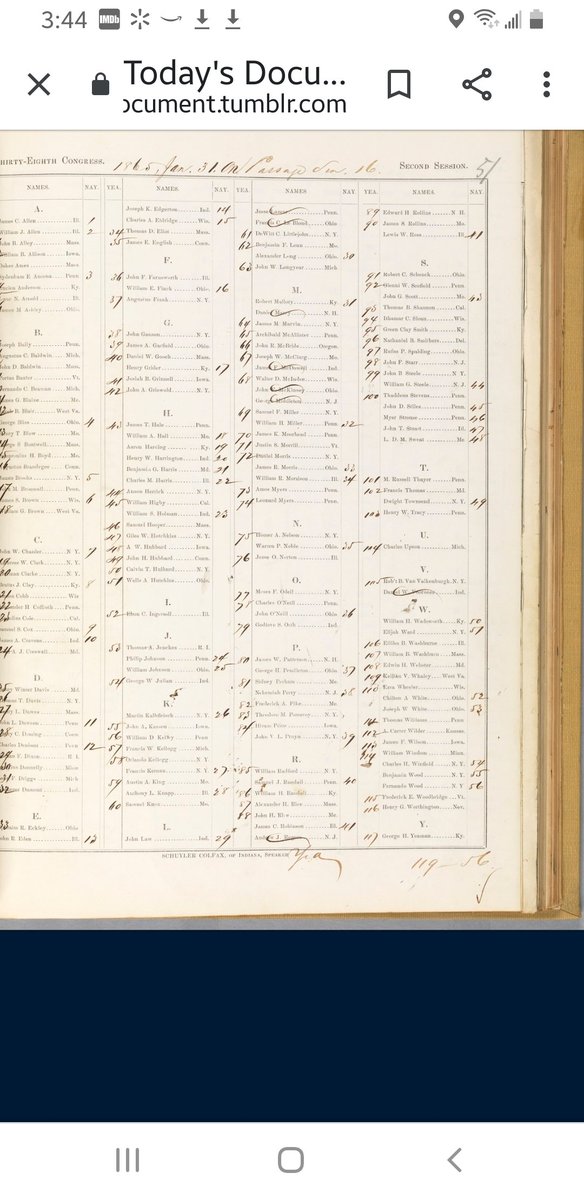 3:44
IMDb
Today's Docu...
ocument.tumblr.com
HIRTY-EIGHTH CONGRESS. 1865, Jan. 31. On Passage Sen. 16. SECOND SESSION. 51
NAMES. NAY.
A.
ames C. Allen Ill. 1
William J. Allen Ill. 2
ohn B. Alley Mass.
William B. Allison Iowa.
Oakes Ames Mass.
Sydenham E. Ancona Penn 3
Anderson Ky
N. Arnold Ill.
mes M. Ashley Ohio.
B.
oseph Baily Penn.
Augustus C. Baldwin Mich.
ohn D. Baldwin Mass.
ortus Baxter Vt.
Fernando C. Beaman Mich.
G. Blaine Me.
B. Blair West Va.
eorge Bliss Ohio. 4
T. Blow Mo.
S. Boutwell Mass.
H. Boyd Mo.
Augustus Brandegee Conn.
ames Brooks N. Y. 5
M. Broomall Penn.
S. Brown Wis. 6
G. Brown West Va.
C.
ohn W. Chanler N. Y. 7
W. Clark N. Y.
Clarke N. Y.
Brutus J. Clay Ky. 8
Cobb Wis.
ander H. Coffroth Penn.
Cole Cal.
S. Cox Ohio. 9
ames A. Cravens Ind. 10
A. J. Creswell Md.
D.
Winter Davis Md.
T. Davis N. Y.
L. Dawes Mass.
L. Dawson Penn. 11
C. Deming Conn.
Charles Denison Penn 12
F. Dixon R. I.
Donnelly Minn
F. Driggs Mich
Dumont Ind.
E.
R. Eckley Ohio.
ohn R. Eden Ill. 13
YEA. NAMES. NAY.
Joseph K. Edgerton Ind. 14
Charles A. Eldridge Wis. 15
34 Thomas D. Eliot Mass.
35 James E. English Conn.
F.
36 John F. Farnsworth Ill.
William E. Finck Ohio. 16
37 Augustus Frank N. Y.
G.
38 John Ganson N. Y.
39 James A. Garfield Ohio.
40 Daniel W. Gooch Mass.
Henry Grider Ky. 17
41 Josiah B. Grinnell Iowa.
42 John A. Griswold N. Y.
H.
43 James T. Hale Penn.
William A. Hall Mo. 18
Aaron Harding Ky. 19
Henry W. Harrington Ind. 20
Benjamin G. Harris Md. 21
Charles M. Harris Ill. 22
44 Anson Herrick N. Y.
45 William Higby Cal.
William S. Holman Ind. 23
46 Samuel Hooper Mass.
47 Giles W. Hotchkiss N. Y.
48 A. W. Hubbard Iowa.
49 John H. Hubbard Conn.
50 Calvin T. Hulburd N. Y.
51 Wells A. Hutchins Ohio.
I.
52 Ebon C. Ingersoll Ill.
J.
53 Thomas A. Jenckes R. I.
Philip Johnson Penn. 24
William Johnson Ohio. 25
54 George W. Julian Ind.
K.
Martin Kalbfleisch N. Y. 26
55 John A. Kasson Iowa.
56 William D. Kelley Penn.
57 Francis W. Kellogg Mich.
58 Orlando Kellogg N. Y.
Francis Kernan N. Y. 27
59 Austin A. King Mo.
Anthony L. Knapp Ill. 28
60 Samuel Knox Mo.
L.
John Law Ind. 29
YEA. NAMES NAY.
Jesse Lazear Penn.
Francis C. Le Blond Ohio.
61 DeWitt C. Littlejohn N. Y.
62 Benjamin F. Loan Mo.
Alexander Long Ohio 30
63 John W. Longyear Mich
M.
Robert Mallory Ky. 31
Daniel Marcy N. H.
64 James M. Marvin N. Y.
65 Archibald McAllister Penn.
66 John R. McBride Oregon.
67 Joseph W. McClurg Mo.
James F. McDowell Ind.
68 Walter D. McIndoe Wis.
John F. McKinney Ohio
George Middleton N. J.
69 Samuel F. Miller N. Y.
William H. Miller Penn. 32
70 James K. Moorhead Penn.
71 Justin S. Morrill Vt.
72 Daniel Morris N. Y.
James R. Morris Ohio. 33
William R. Morrison Ill. 34
73 Amos Myers Penn.
74 Leonard Myers Penn.
N.
75 Homer A. Nelson N. Y.
Warren P. Noble Ohio. 35
76 Jesse O. Norton Ill.
O.
77 Moses F. Odell N. Y.
78 Charles O'Neill Penn.
John O'Neill Ohio 36
79 Godlove S. Orth Ind.
P.
80 James W. Patterson N. H.
George H. Pendleton Ohio. 37
81 Sidney Perham Me.
Nehemiah Perry N. J. 38
82 Frederick A. Pike Me.
83 Theodore M. Pomeroy N. Y.
84 Hiram Price Iowa.
John V. L. Pruyn N. Y. 39
R.
85 William Radford N. Y.
Samuel J. Randall Penn. 40
86 William H. Randall Ky.
87 Alexander H. Rice Mass.
88 John H. Rice Me.
James C. Robinson Ill. 41
Andrew J. Rogers N. J.
YEA. NAMES. NAY.
89 Edward H. Rollins N. H.
90 James S. Rollins Mo.
Lewis W. Ross Ill.
S.
91 Robert C. Schenck Ohio.
92 Glenni W. Scofield Penn.
John G. Scott Mo. 43
93 Thomas B. Shannon Cal.
94 Ithamar C. Sloan Wis.
95 Green Clay Smith Ky.
96 Nathaniel B. Smithers Del.
97 Rufus P. Spalding Ohio.
98 John F. Starr N. J.
99 John B. Steele N. Y.
William G. Steele N. J. 44
100 Thaddeus Stevens Penn.
John D. Stiles Penn. 45
Myer Strouse Penn. 46
John T. Stuart Ill. 47
L. D. M. Sweat Me. 48
T.
101 M. Russell Thayer Penn.
102 Francis Thomas Md.
Dwight Townsend N. Y. 49
103 Henry W. Tracy Penn.
U.
104 Charles Upson Mich.
V.
105 Rob't B. Van Valkenburgh. N. Y.
Daniel W. Voorhees Ind.
W.
William H. Wadsworth Ky. 50
Elijah Ward N. Y. 51
106 Elihu B. Washburne Ill.
107 William B. Washburn Mass.
108 Edwin H. Webster Md.
109 Kellian V. Whaley West Va.
110 Ezra Wheeler Wis.
Chilton A. White Ohio. 52
Joseph W. White Ohio. 53
111 Thomas Williams Penn.
112 A. Carter Wilder Kansas.
113 James F. Wilson Iowa.
114 William Windom Minn.
Charles H. Winfield N. Y. 54
Benjamin Wood N. Y. 55
Fernando Wood N. Y. 56
115 Frederick E. Woodbridge Vt.
116 Henry G. Worthington Nev.
Y.
117 George H. Yeaman Ky.
SCHUYLER COLFAX, OF INDIANA, SPEAKER Yea
119 — 56